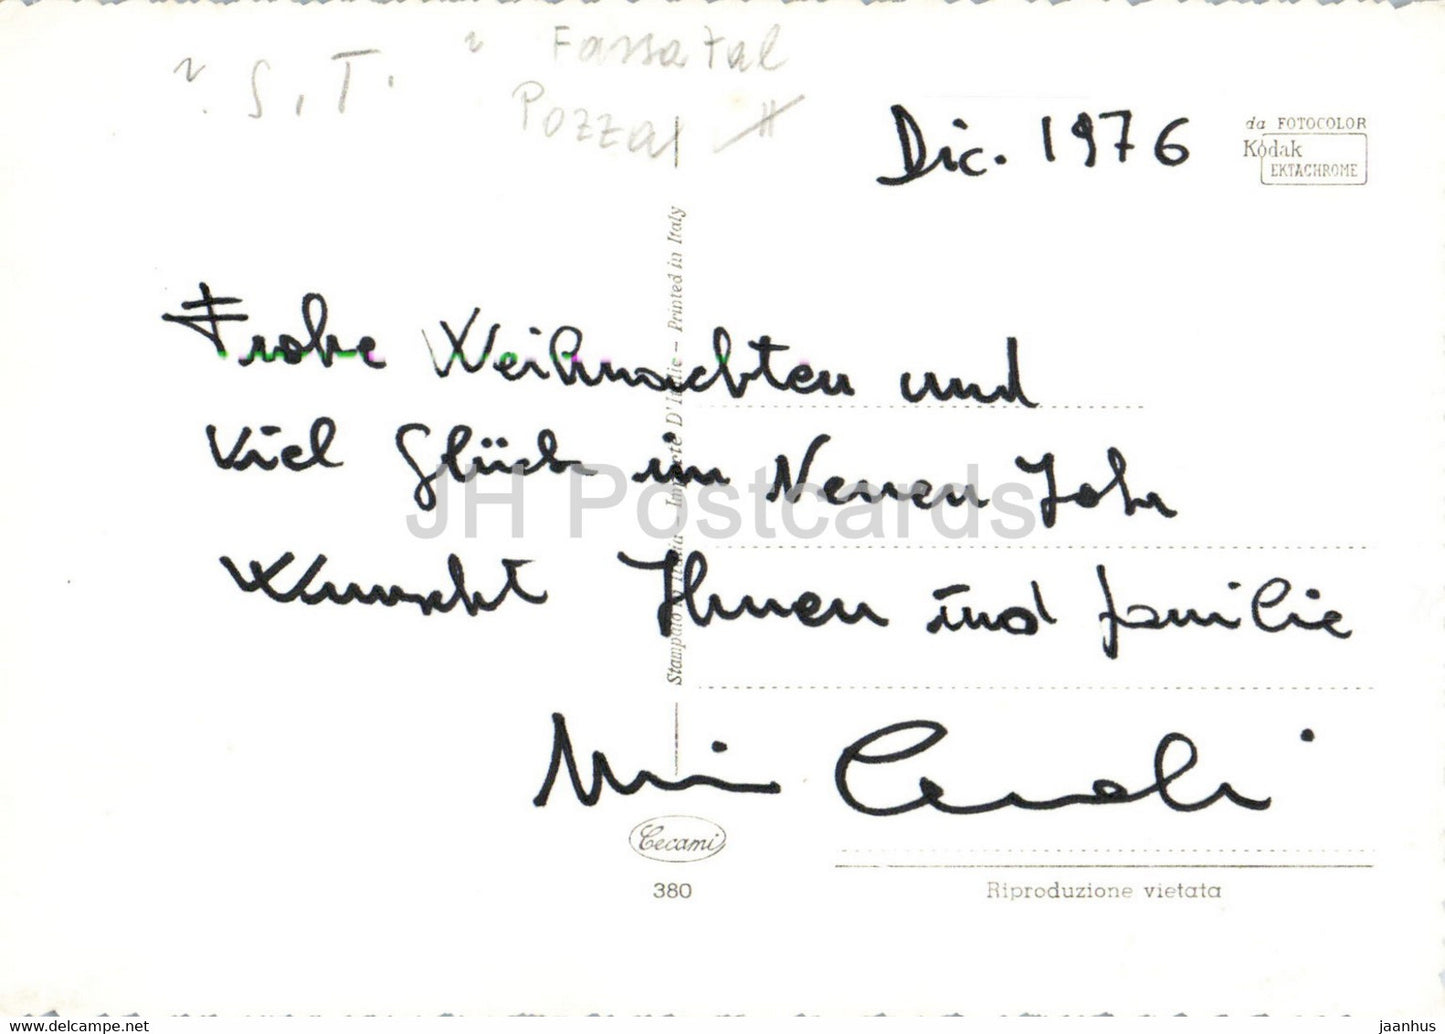 "S.T." Fassatal
Pozza
Dic. 1976
da FOTOCOLOR
Kodak
EKTACHROME
Frohe Weihnachten und
viel Glück im Neuen Jahr
Wunscht Ihnen und familie
Stampato in Italia - Imprimé D'Italie - Printed in Italy
JH Postcards
Cecami
380
Riproduzione vietata
www.delcampe.net
jaanhus